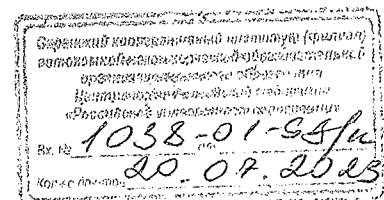 Саранский кооперативный институт (филиал)
автономной некоммерческой образовательной
организации высшего образования
Центросоюза Российской Федерации
«Российский университет кооперации»
Вх. № 1038-01-
20.07.2023
Кол-во